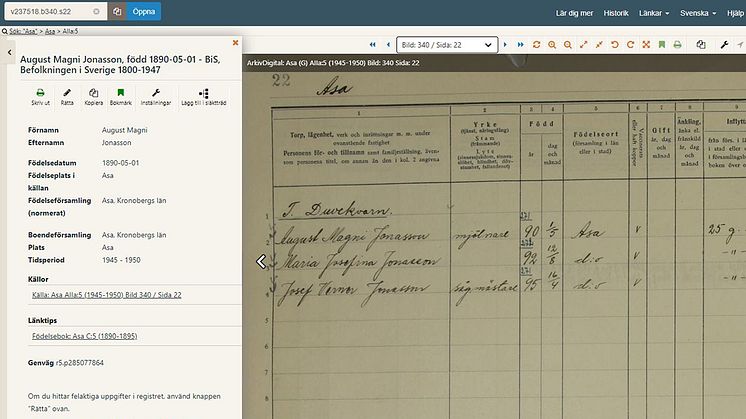 v237518.b340.s22
Öppna
Lär dig mer Historik Länkar Svenska Hjälp
Sök: "Asa" > Asa > AIIa:5
Bild: 340 / Sida: 22
ArkivDigital: Asa (G) AIIa:5 (1945-1950) Bild: 340 Sida: 22
August Magni Jonasson, född 1890-05-01 - BiS,
Befolkningen i Sverige 1800-1947
Skriv ut Rätta Kopiera Bokmärk Inställningar Lägg till i släktträd
Förnamn August Magni
Efternamn Jonasson
Födelsedatum 1890-05-01
Födelseplats i källan Asa
Födelseförsamling (normerat) Asa, Kronobergs län
Boendeförsamling Asa, Kronobergs län
Plats Asa
Tidsperiod 1945 - 1950
Källor
Källa: Asa AIIa:5 (1945-1950) Bild 340 / Sida 22
Länktips
Födelsebok: Asa C:5 (1890-1895)
Genväg r5.p285077864
Om du hittar felaktiga uppgifter i registret, använd knappen
"Rätta" ovan.
22 Asa
1 2 3 4 5 6 7 8 9
Torp, lägenhet, verk och inrättningar m. m. under
ovanstående fastighet
Personens för- och tillnamn samt familjeställning, även-
som personens titel, om annan än den i kol. 2 angivna
Yrke
(tjänst, näringsfång)
Stam
(främmande)
Lyte
Född
år
dag och månad
Födelseort
(församling i län eller i stad)
Gift
år, dag och månad
1 T. Duvekvarn.
2 August Magni Jonasson mjölnare 90 1/5 Asa v 25 g.
3 Maria Josefina Jonasson 92 12/8 d:o v -"-
4 Josef Verner Jonasson sågmästare 95 16/4 d:o v -"-
5
6
7
8